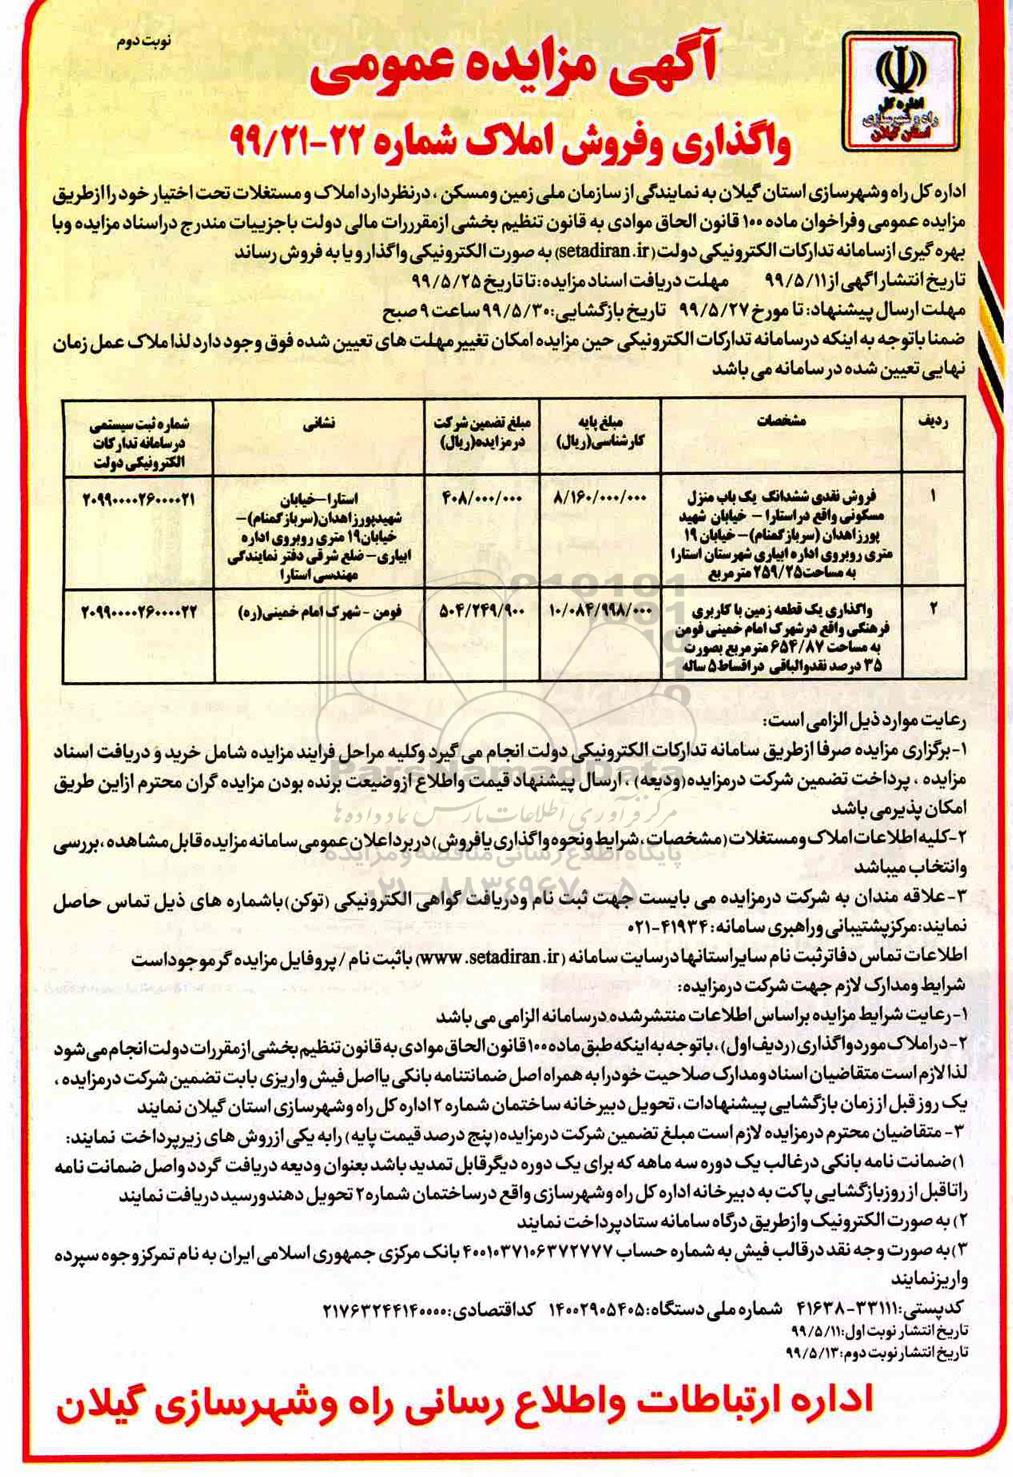 نوبت دوم
اداره کل
راه و شهرسازی
استان گیلان
آگهی مزایده عمومی
واگذاری وفروش املاک شماره ۲۲-۹۹/۲۱
اداره کل راه وشهرسازی استان گیلان به نمایندگی از سازمان ملی زمین ومسکن ، درنظردارد املاک و مستغلات تحت اختیار خود را ازطریق
مزایده عمومی وفراخوان ماده ۱۰۰ قانون الحاق موادی به قانون تنظیم بخشی ازمقرررات مالی دولت باجزییات مندرج دراسناد مزایده وبا
بهره گیری ازسامانه تدارکات الکترونیکی دولت(setadiran.ir) به صورت الکترونیکی واگذار و یا به فروش رساند
تاریخ انتشار اگهی از ۹۹/۵/۱۱ مهلت دریافت اسناد مزایده:تا تاریخ ۹۹/۵/۲۵
مهلت ارسال پیشنهاد: تا مورخ ۹۹/۵/۲۷ تاریخ بازگشایی:۹۹/۵/۳۰ ساعت ۹ صبح
ضمنا باتوجه به اینکه درسامانه تدارکات الکترونیکی حین مزایده امکان تغییر مهلت های تعیین شده فوق وجود دارد لذا ملاک عمل زمان
نهایی تعیین شده در سامانه می باشد
ردیف مشخصات مبلغ پایه کارشناسی(ریال) مبلغ تضمین شرکت درمزایده(ریال) نشانی شماره ثبت سیستمی درسامانه تدارکات الکترونیکی دولت
۱ فروش نقدی ششدانگ یک باب منزل مسکونی واقع در استارا – خیابان شهید پورزاهدان (سرباز گمنام)– خیابان ۱۹ متری روبروی اداره ابیاری شهرستان استارا به مساحت۲۵۹/۲۵ مترمربع ۸/۱۶۰/۰۰۰/۰۰۰ ۴۰۸/۰۰۰/۰۰۰ استارا–خیابان شهیدپورزاهدان(سربازگمنام)– خیابان۱۹ متری روبروی اداره ابیاری– ضلع شرقی دفتر نمایندگی مهندسی استارا ۲۰۹۹۰۰۰۰۲۶۰۰۰۰۲۱
۲ واگذاری یک قطعه زمین با کاربری فرهنگی واقع درشهرک امام خمینی فومن به مساحت ۶۵۴/۸۷ مترمربع بصورت ۳۵ درصد نقدوالباقی دراقساط۵ ساله ۱۰/۰۸۴/۹۹۸/۰۰۰ ۵۰۴/۲۴۹/۹۰۰ فومن - شهرک امام خمینی(ره) ۲۰۹۹۰۰۰۰۲۶۰۰۰۰۲۲
رعایت موارد ذیل الزامی است:
۱-برگزاری مزایده صرفا ازطریق سامانه تدارکات الکترونیکی دولت انجام می گیرد وکلیه مراحل فرایند مزایده شامل خرید و دریافت اسناد
مزایده ، پرداخت تضمین شرکت درمزایده(ودیعه) ، ارسال پیشنهاد قیمت واطلاع ازوضیعت برنده بودن مزایده گران محترم ازاین طریق
امکان پذیرمی باشد
۲-کلیه اطلاعات املاک ومستغلات (مشخصات ،شرایط ونحوه واگذاری یافروش) دربرد اعلان عمومی سامانه مزایده قابل مشاهده ،بررسی
وانتخاب میباشد
۳-علاقه مندان به شرکت درمزایده می بایست جهت ثبت نام ودریافت گواهی الکترونیکی (توکن)باشماره های ذیل تماس حاصل
نمایند:مرکزپشتیبانی وراهبری سامانه:۴۱۹۳۴-۰۲۱
اطلاعات تماس دفاترثبت نام سایراستانها درسایت سامانه (www.setadiran.ir) باثبت نام / پروفایل مزایده گر موجوداست
شرایط ومدارک لازم جهت شرکت درمزایده:
۱-رعایت شرایط مزایده براساس اطلاعات منتشرشده درسامانه الزامی می باشد
۲-دراملاک مورد واگذاری(ردیف اول)،باتوجه به اینکه طبق ماده ۱۰۰ قانون الحاق موادی به قانون تنظیم بخشی ازمقررات دولت انجام می شود
لذا لازم است متقاضیان اسناد ومدارک صلاحیت خودرا به همراه اصل ضمانتنامه بانکی یااصل فیش واریزی بابت تضمین شرکت درمزایده ،
یک روز قبل از زمان بازگشایی پیشنهادات ، تحویل دبیرخانه ساختمان شماره ۲ اداره کل راه وشهرسازی استان گیلان نمایند
۳- متقاضیان محترم درمزایده لازم است مبلغ تضمین شرکت درمزایده(پنج درصد قیمت پایه) رابه یکی ازروش های زیرپرداخت نمایند:
۱)ضمانت نامه بانکی درغالب یک دوره سه ماهه که برای یک دوره دیگرقابل تمدید باشد بعنوان ودیعه دریافت گردد واصل ضمانت نامه
راتاقبل ازروزبازگشایی پاکت به دبیرخانه اداره کل راه وشهرسازی واقع درساختمان شماره۲ تحویل دهندورسید دریافت نمایند
۲) به صورت الکترونیک وازطریق درگاه سامانه ستادپرداخت نمایند
۳)به صورت وجه نقد درقالب فیش به شماره حساب ۴۰۰۱۰۳۷۱۰۶۳۷۲۷۷۷ بانک مرکزی جمهوری اسلامی ایران به نام تمرکز وجوه سپرده
واریزنمایند
کدپستی:۳۳۱۱۱-۴۱۶۳۸ شماره ملی دستگاه:۱۴۰۰۲۹۰۵۴۰۵ کداقتصادی:۲۱۷۶۳۲۴۴۱۴۰۰۰۰
تاریخ انتشار نوبت اول:۹۹/۵/۱۱
تاریخ انتشار نوبت دوم:۹۹/۵/۱۳
اداره ارتباطات واطلاع رسانی راه وشهرسازی گیلان
ParsNamadData
مرکز فرآوری اطلاعات پارس نماد داده ها
پایگاه اطلاع رسانی مناقصه و مزایده
۰۲۱-۸۸۳۴۹۶۷۰-۵